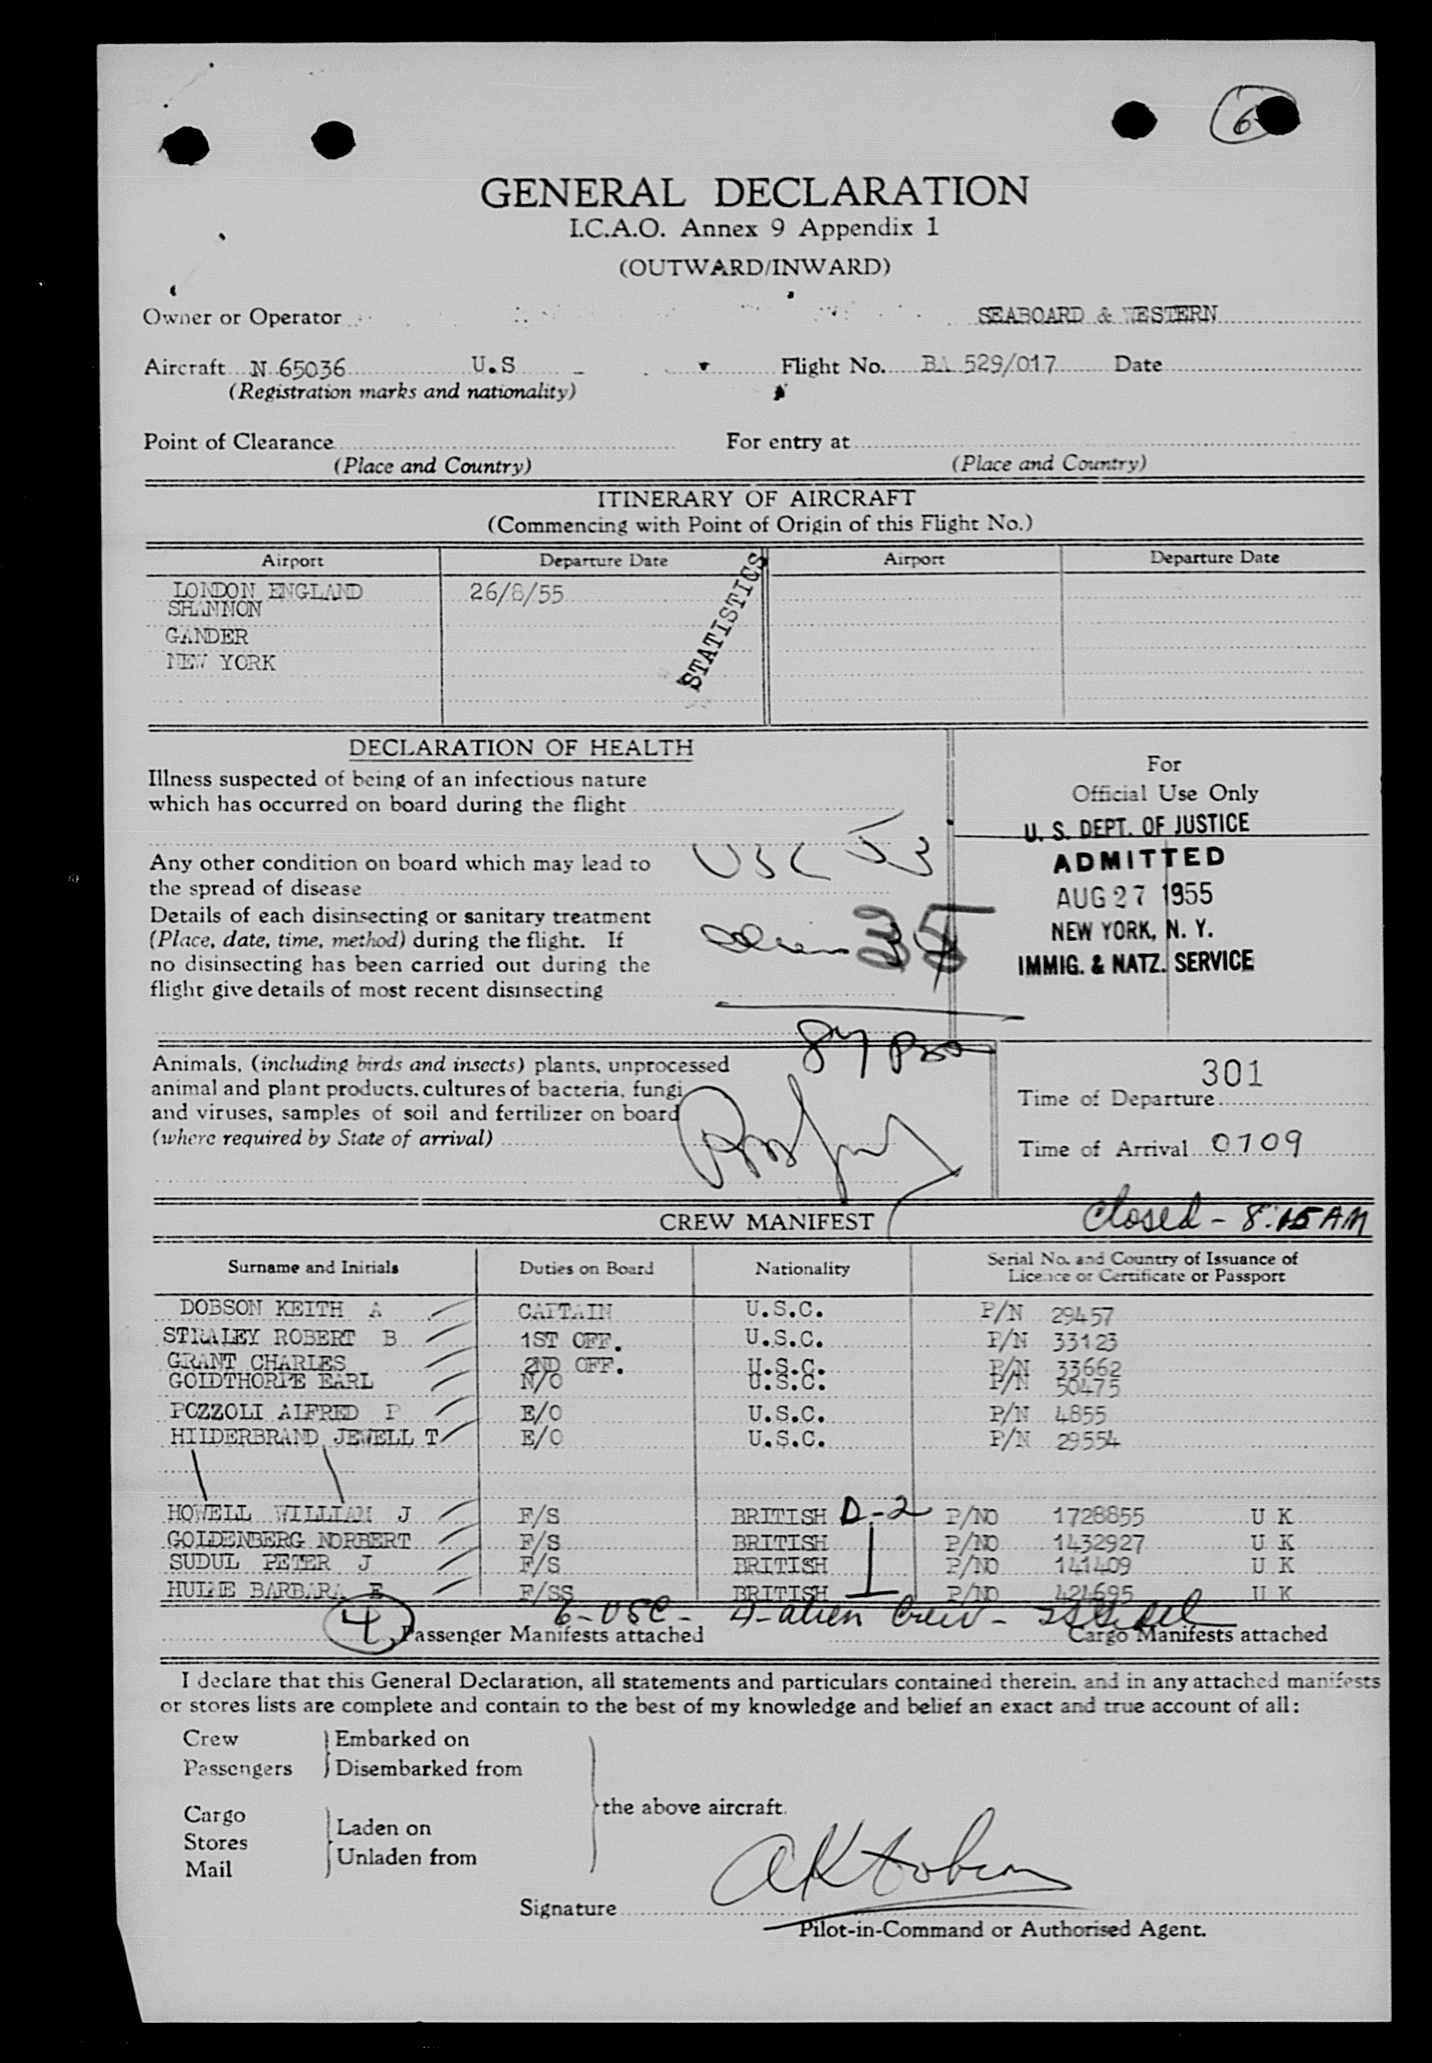 6
GENERAL DECLARATION
I.C.A.O. Annex 9 Appendix 1
(OUTWARD/INWARD)
Owner or Operator SEABOARD & WESTERN
Aircraft N 65036 U.S Flight No. BA 529/017 Date
(Registration marks and nationality)
Point of Clearance For entry at
(Place and Country) (Place and Country)
ITINERARY OF AIRCRAFT
(Commencing with Point of Origin of this Flight No.)
Airport Departure Date Airport Departure Date
LONDON ENGLAND 26/8/55
SHANNON
GANDER
NEW YORK
STATISTICS
DECLARATION OF HEALTH
Illness suspected of being of an infectious nature
which has occurred on board during the flight
Any other condition on board which may lead to
the spread of disease
Details of each disinsecting or sanitary treatment
(Place, date, time, method) during the flight. If
no disinsecting has been carried out during the
flight give details of most recent disinsecting
USC 53
For
Official Use Only
U. S. DEPT. OF JUSTICE
ADMITTED
AUG 27 1955
NEW YORK, N. Y.
IMMIG. & NATZ. SERVICE
Animals, (including birds and insects) plants, unprocessed
animal and plant products, cultures of bacteria, fungi
and viruses, samples of soil and fertilizer on board
(where required by State of arrival)
301
Time of Departure
Time of Arrival 0709
CREW MANIFEST closed - 8:15 AM
Surname and Initials Duties on Board Nationality Serial No. and Country of Issuance of
Licence or Certificate or Passport
DOBSON KEITH A CAPTAIN U.S.C. P/N 29457
STRALEY ROBERT B 1ST OFF. U.S.C. P/N 33123
GRANT CHARLES 2ND OFF. U.S.C. P/N 33662
GOLDTHORPE EARL N/O U.S.C. P/N 50475
POZZOLI ALFRED P E/O U.S.C. P/N 4855
HILDERBRAND JEWELL T E/O U.S.C. P/N 29554
HOWELL WILLIAM J F/S BRITISH D-2 P/NO 1728855 U K
GOLDENBERG NORBERT F/S BRITISH P/NO 1432927 U K
SUDUL PETER J F/S BRITISH P/NO 141409 U K
HULME BARBARA E F/SS BRITISH P/NO 424695 U K
6-USC - 4-alien Crew -
4 Passenger Manifests attached Cargo Manifests attached
I declare that this General Declaration, all statements and particulars contained therein, and in any attached manifests
or stores lists are complete and contain to the best of my knowledge and belief an exact and true account of all:
Crew Embarked on
Passengers Disembarked from
the above aircraft.
Cargo
Stores Laden on
Mail Unladen from
Signature
Pilot-in-Command or Authorised Agent.